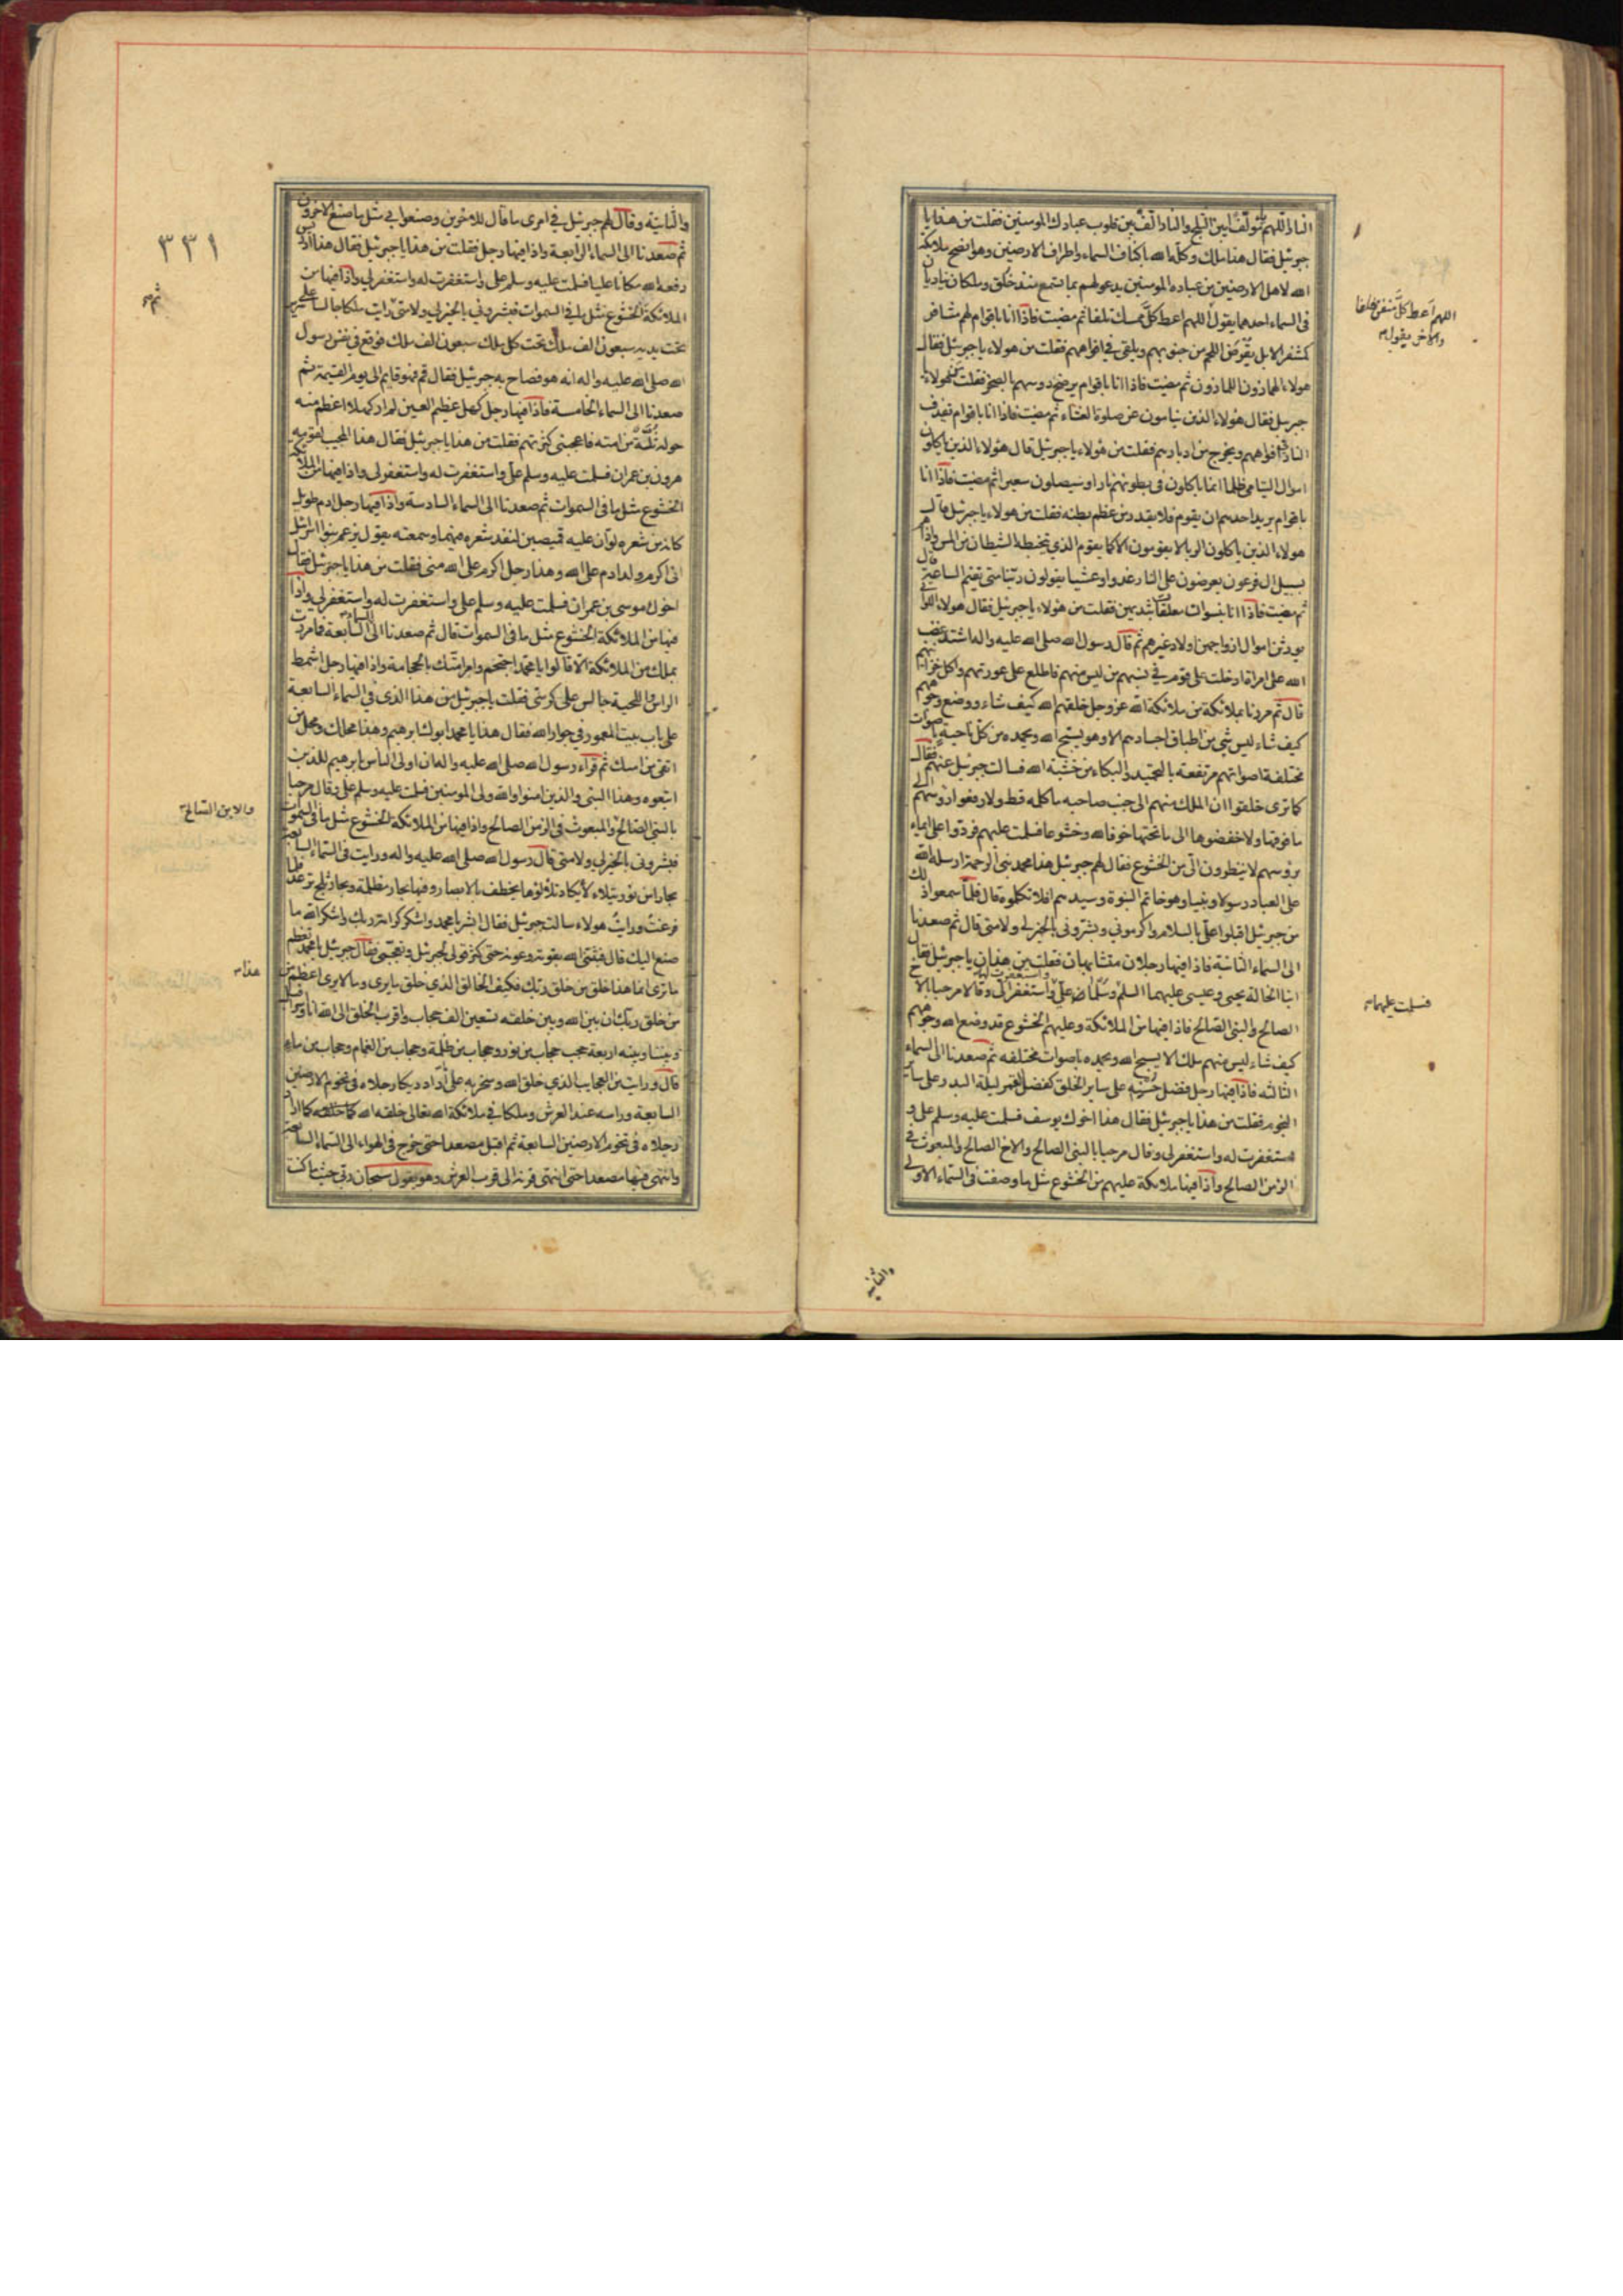 النار اللهم يا مؤلف بين الثلج والنار الف بين قلوب عبادك المومنين فقلت من هذا يا
جبرئيل فقال هذا ملك وكله الله باكناف السماء واطراف الارضين وهو انصح ملائكة
الله لاهل الارضين من عباده المومنين يدعو لهم بما تسمع منذ خلق وملكان يناديان
في السماء احدهما يقول اللهم اعط كل ممسك تلفا ثم مضيت فاذا انا باقوام لهم مشافر
كمشفر الابل يقرض اللحم من جنوبهم ويلقى في افواههم فقلت من هولاء يا جبرئيل فقال
هولاء الهمازون اللمازون ثم مضيت فاذا انا باقوام يرضخ روسهم بالصخر فقلت من هولاء يا
جبرئيل فقال هؤلاء الذين ينامون عن صلوة العشاء ثم مضيت فاذا انا باقوام تقذف
النار في افواههم ويخرج من ادبارهم فقلت من هؤلاء يا جبرئيل قال هؤلاء الذين ياكلون
اموال اليتامى ظلما انما ياكلون في بطونهم نارا وسيصلون سعيرا ثم مضيت فاذا انا
باقوام يريد احدهم ان يقوم فلا يقدر من عظم بطنه فقلت من هولاء يا جبرئيل قال
هولاء الذين ياكلون الربا لا يقومون الا كما يقوم الذي يتخبطه الشيطان من المس واذا هم
بسبيل ال فرعون يعرضون على النار غدوا وعشيا يقولون ربنا متى تقيم الساعة قال
ثم مضيت فاذا انا بنسوان معلقات بثديهن فقلت من هؤلاء يا جبرئيل فقال هولاء اللواتي
يورثن اموال ازواجهن اولاد غيرهم ثم قال رسول الله صلى الله عليه واله اشتد غضب
الله على امراة ادخلت على قوم في نسبهم من ليس منهم فاطلع على عورتهم واكل خزائنهم
قال ثم مررنا بملائكة من ملائكة الله عز وجل خلقهم الله كيف شاء ووضع وجوههم
كيف شاء ليس شي من اطباق اجسادهم الا وهو يسبح الله وبحمده من كل ناحية باصوات
مختلفة اصواتهم مرتفعة بالتحميد والبكاء من خشية الله فسالت جبرئيل عنهم فقال
كما ترى خلقوا ان الملك منهم الى جنب صاحبه ما كلمه قط ولا رفعوا روسهم الى
ما فوقها ولا خفضوها الى ما تحتها خوفا لله وخشوعا فسلمت عليهم فردوا على ايماء
بروسهم لا ينظرون الي من الخشوع فقال لهم جبرئيل هذا محمد نبي الرحمة ارسله الله
على العباد رسولا ونبيا وهو خاتم النبوة وسيدهم افلا تكلموه قال فلما سمعوا ذلك
من جبرئيل اقبلوا علي بالسلام واكرموني وبشروني بالخير لي ولامتي قال ثم صعدنا
الى السماء الثانية فاذا فيها رجلان متشابهان فقلت من هذان يا جبرئيل فقال
ابنا الخالة يحيى وعيسى عليهما السلم وسلما علي واستغفرت لهما واستغفرا لي وقالا مرحبا بالاخ
الصالح والنبي الصالح فاذا فيها من الملائكة وعليهم الخشوع قد وضع الله وجوههم
كيف شاء ليس منهم ملك الا يسبح الله وبحمده باصوات مختلفه ثم صعدنا الى السماء
الثالثه فاذا فيها رجل فضل حسنه على ساير الخلق كفضل القمر ليلة البدر على ساير
النجوم فقلت من هذا يا جبرئيل فقال هذا اخوك يوسف فسلمت عليه وسلم علي و
استغفرت له واستغفر لي وقال مرحبا بالنبي الصالح والاخ الصالح والمبعوث في
الزمن الصالح واذا فيها ملائكة عليهم من الخشوع مثل ما وصفت في السماء الاولى
اللهم اعط كل منفق خلفا
والاخر يقول
فسلمت عليهما
والثانية
والثانية وقال لهم جبرئيل في امري ما قال للاخرين وصنعوا بي مثل ما صنع الاخرون
ثم صعدنا الى السماء الرابعة واذا فيها رجل فقلت من هذا يا جبرئيل فقال هذا ادريس
رفعه الله مكانا عليا فسلمت عليه وسلم علي واستغفرت له واستغفر لي واذا فيها من
الملائكة الخشوع مثل ما في السموات فبشروني بالخير لي ولامتي رايت ملكا جالسا على سرير
تحت يديه سبعون الف ملك تحت كل ملك سبعون الف ملك فوقع في نفس رسول
الله صلى الله عليه واله انه هو فصاح به جبرئيل فقال قم فهو قايم الى يوم القيمة ثم
صعدنا الى السماء الخامسة فاذا فيها رجل كهل عظيم العين لم ار كهلا اعظم منه
حوله ثلة من امته فاعجبتني كثرتهم فقلت من هذا يا جبرئيل فقال هذا المجيب لقومه
هرون بن عمران فسلمت عليه وسلم علي واستغفرت له واستغفر لي واذا فيها من الملائكة
الخشوع مثل ما في السموات ثم صعدنا الى السماء السادسة واذا فيها رجل ادم طويل
كانه من شعره لو ان عليه قميصين لنفذ شعره فيهما وسمعته يقول يزعم بنو اسرائيل
اني اكرم ولد ادم على الله وهذا رجل اكرم على الله مني فقلت من هذا يا جبرئيل فقال
اخوك موسى بن عمران فسلمت عليه وسلم علي واستغفرت له واستغفر لي واذا
فيها من الملائكة الخشوع مثل ما في السموات قال ثم صعدنا الى السماء السابعة فما مررت
بملك من الملائكة الا قالوا يا محمد احتجم وامر امتك بالحجامة واذا فيها رجل اشمط
الراس واللحية جالس على كرسي فقلت يا جبرئيل من هذا الذي في السماء السابعة
على باب بيت المعمور في جوار الله فقال هذا يا محمد ابوك ابرهيم وهذا محلك ومحل من
اتقى من امتك ثم قراء رسول الله صلى الله عليه واله ان اولى الناس بابرهيم للذين
اتبعوه وهذا النبي والذين امنوا والله ولي المومنين فسلمت عليه وسلم علي وقال مرحبا
بالنبي الصالح والمبعوث في الزمن الصالح واذا فيها من الملائكة الخشوع مثل ما في السموات
فبشروني بالخير لي ولامتي قال رسول الله صلى الله عليه واله ورايت في السماء السابعة
بحارا من نور يتلالا يكاد تلالؤها يخطف بالابصار وفيها بحار مظلمة وبحار ثلج ترعد فلما
فزعت ورايت هولاء سالت جبرئيل فقال ابشر يا محمد واشكر كرامة ربك واشكر الله ما
صنع اليك قال فثبتني الله بقوته وعونه حتى كثر قولي لجبرئيل وتعجبي فقال جبرئيل يا محمد تعظم
ما ترى انما هذا خلق من خلق ربك فكيف الخالق الذي خلق ما يرى وما لا يرى اعظم من
من خلق ربك ان بين الله وبين خلقه تسعين الف حجاب واقرب الخلق الى الله انا واسرافيل
وبيننا وبينه اربعة حجب حجاب من نور وحجاب من ظلمة وحجاب من الغمام وحجاب من ماء
قال ورايت من العجايب الذي خلق الله وسخر به على ما اراد ديكا رجلاه في تخوم الارضين
السابعة وراسه عند العرش وملكا في ملائكة الله تعالى خلقه الله كما خلقه كما اراد
رجلاه في تخوم الارضين السابعة ثم اقبل مصعدا حتى خرج في الهواء الى السماء السابعة
وانتهى فيها مصعدا حتى انتهى قرنه الى قرب العرش وهو يقول سبحان ربي حيث ما كنت
٣٣١
والابن الصالح
هذا